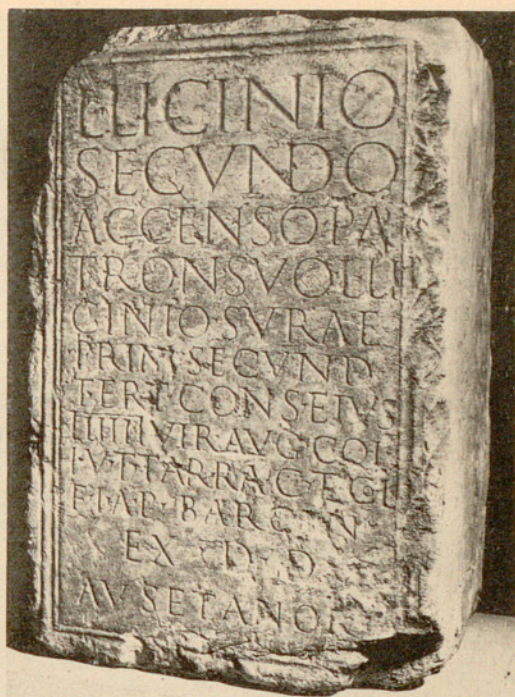 L LICINIO
SECVNDO
ACCENSO PA
TRON SVO L LI
CINIO · SVRAE
PRIM · SECVND
TERT CONS EIVS
IIIIII VIR AVG COL
I · V · T · TARRAC · ET COL
F · I · A · P · BARCIN
EX · D · D
AVSETANOR